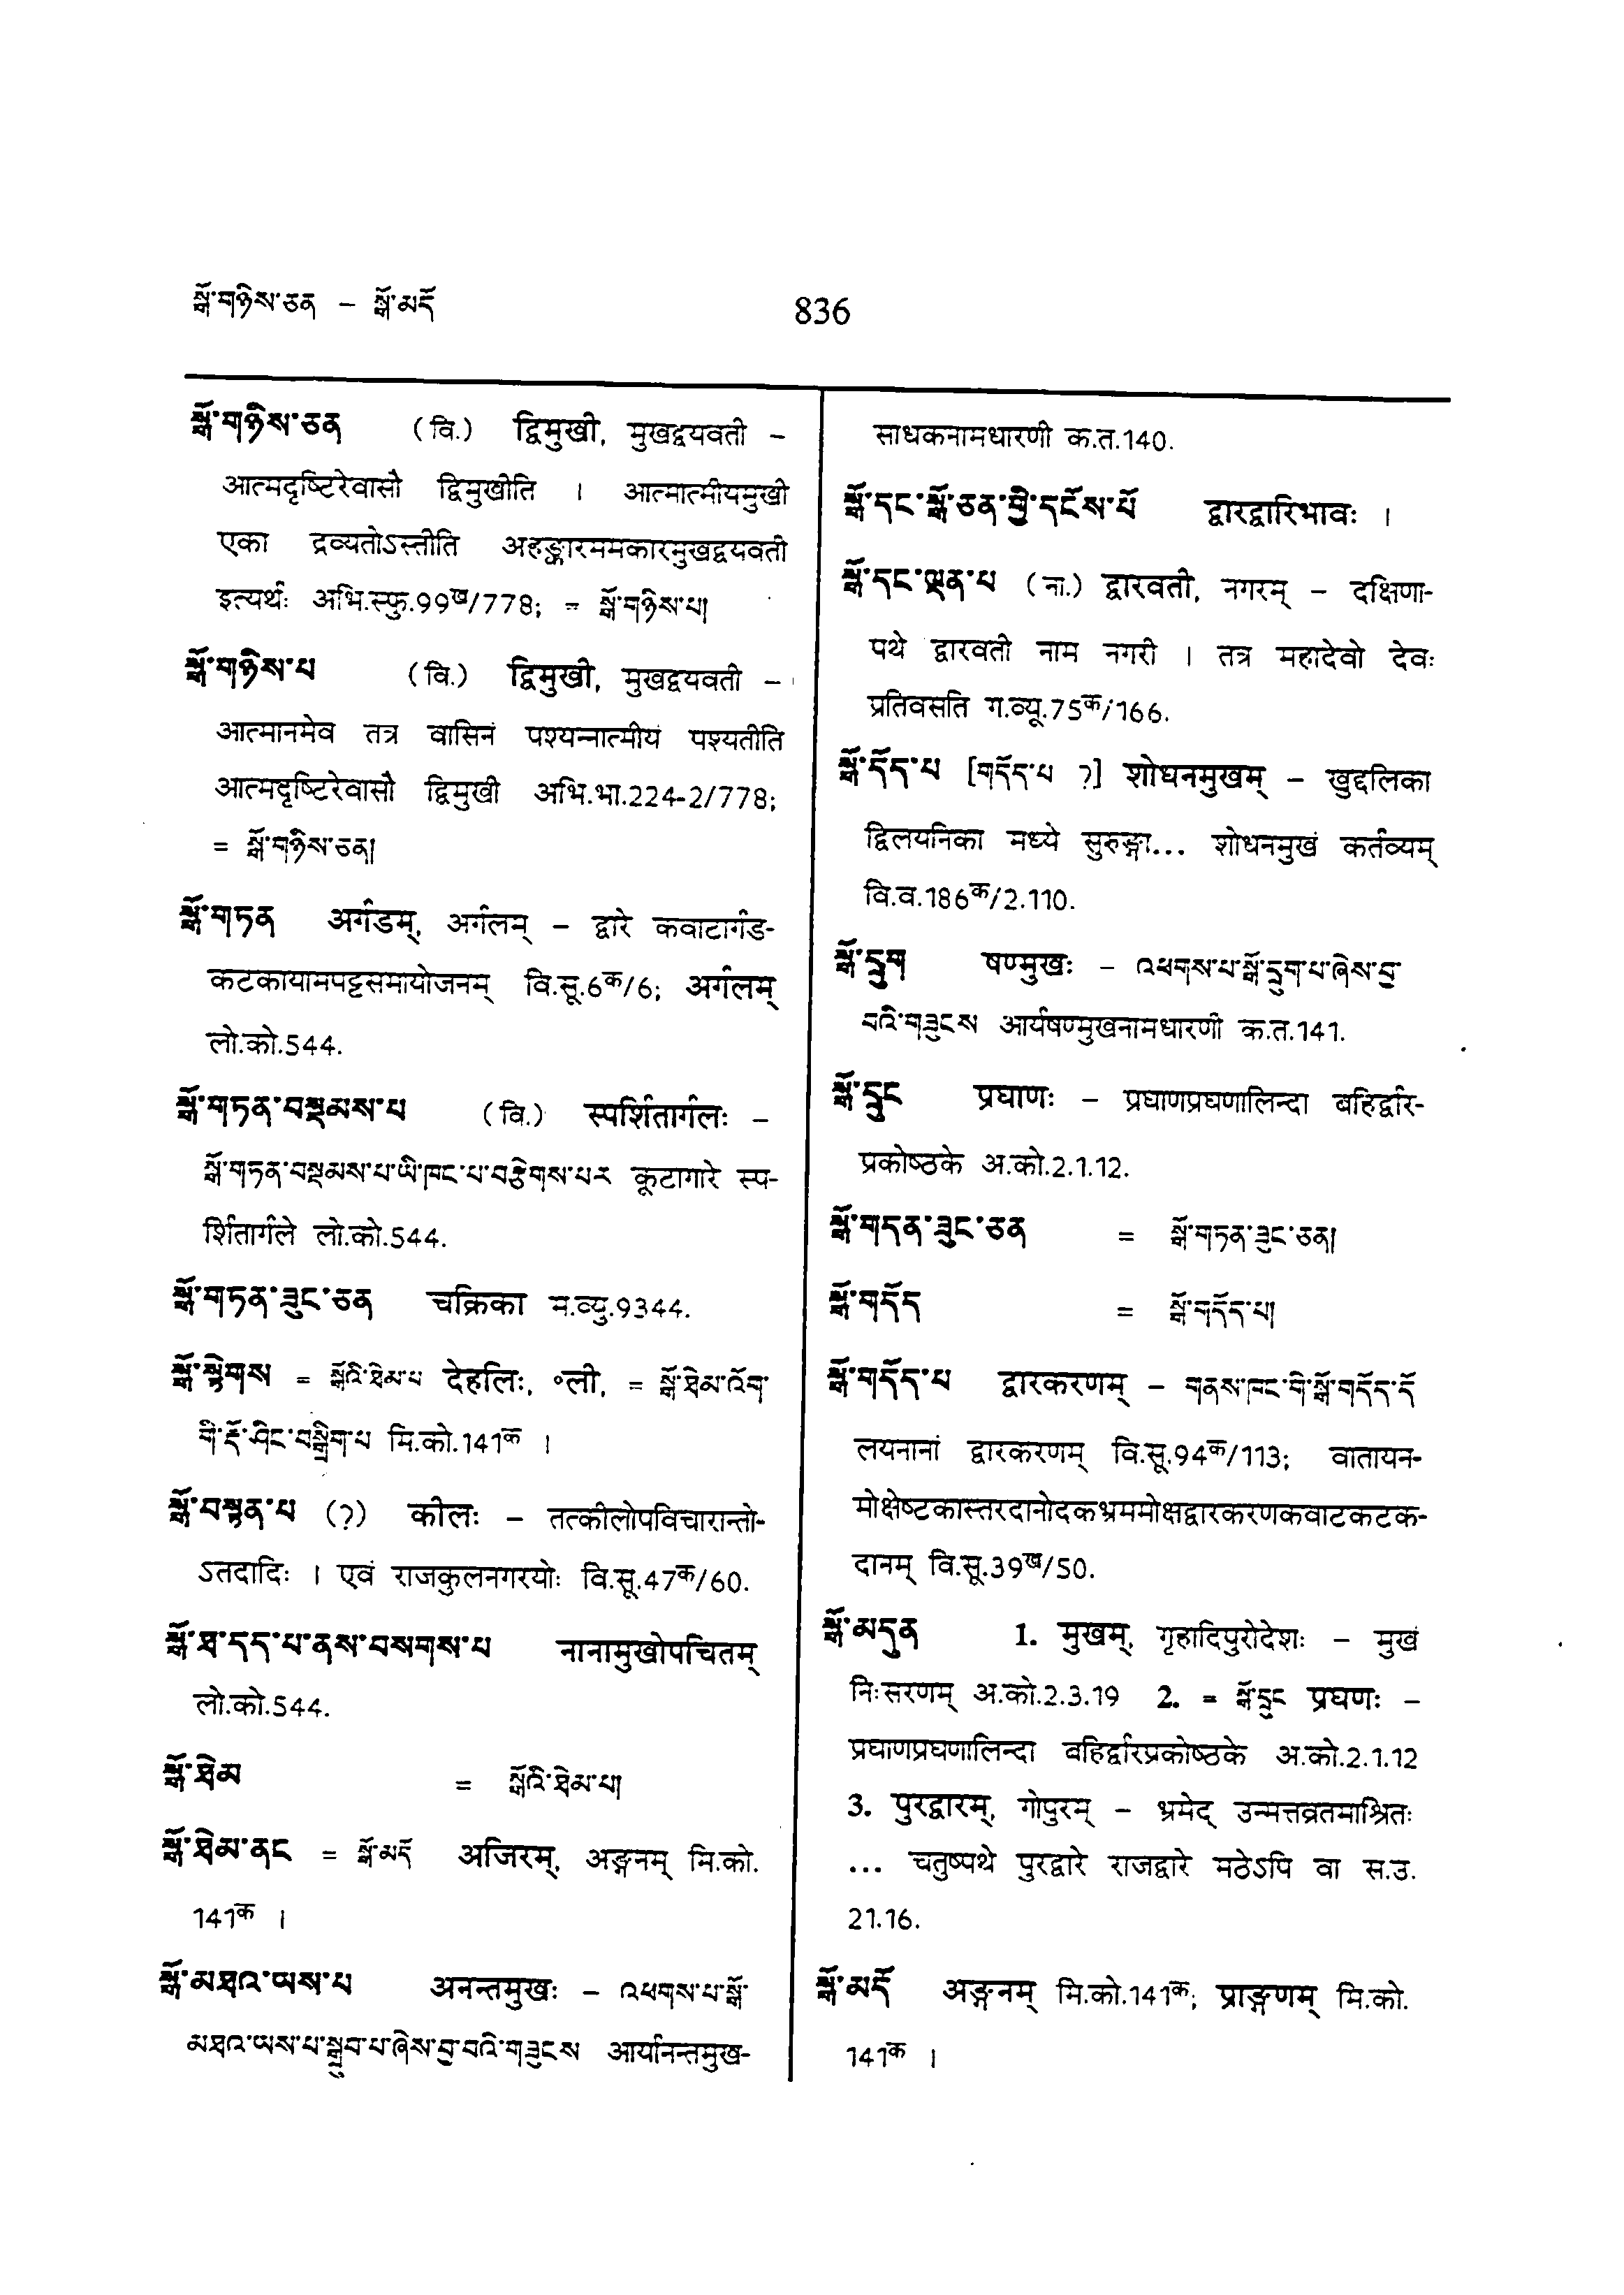 སྒོ་གཉིས་ཅན – སྒོ་མདོ
836
སྒོ་གཉིས་ཅན (वि.) द्विमुखी, मुखद्वयवती –
आत्मदृष्टिरेवासौ द्विमुखीति । आत्मात्मीयमुखी
एका द्रव्यतोऽस्तीति अहङ्कारममकारमुखद्वयवती
इत्यर्थः अभि.स्फु.99ख/778; = སྒོ་གཉིས་པ།
སྒོ་གཉིས་པ (वि.) द्विमुखी, मुखद्वयवती –
आत्मानमेव तत्र वासिनं पश्यन्नात्मीयं पश्यतीति
आत्मदृष्टिरेवासौ द्विमुखी अभि.भा.224-2/778;
= སྒོ་གཉིས་ཅན།
སྒོ་གཏན अर्गडम्, अर्गलम् – द्वारे कवाटार्गड-
कटकायामपट्टसमायोजनम् वि.सू.6क/6; अर्गलम्
लो.को.544.
སྒོ་གཏན་བསྡམས་པ (वि.) स्पर्शितार्गलः –
སྒོ་གཏན་བསྡམས་པ་ཡི་ཁང་པ་བརྩེགས་པར कूटागारे स्प-
र्शितार्गले लो.को.544.
སྒོ་གཏན་ཟུང་ཅན चक्रिका म.व्यु.9344.
སྒོ་སྟེགས = སྒོའི་ཐེམ་པ देहलिः, ॰ली, = སྒོ་ཐེམ་འོག་
གི་རྡོ་ཤིང་བསྒྲིག་པ मि.को.141क ।
སྒོ་བསྟན་པ (?) कीलः – तत्कीलोपविचारान्तो-
ऽतदादिः । एवं राजकुलनगरयोः वि.सू.47क/60.
སྒོ་ཐ་དད་པ་ནས་བསགས་པ नानामुखोपचितम्
लो.को.544.
སྒོ་ཐེམ = སྒོའི་ཐེམ་པ།
སྒོ་ཐེམ་ནང = སྒོ་མདོ अजिरम्, अङ्गनम् मि.को.
141क ।
སྒོ་མཐའ་ཡས་པ अनन्तमुखः – འཕགས་པ་སྒོ་
མཐའ་ཡས་པ་སྒྲུབ་པ་ཞེས་བྱ་བའི་གཟུངས आर्यानन्तमुख-
साधकनामधारणी क.त.140.
སྒོ་དང་སྒོ་ཅན་གྱི་དངོས་པོ द्वारद्वारिभावः ।
སྒོ་དང་ལྡན་པ (ना.) द्वारवती, नगरम् – दक्षिणा-
पथे द्वारवती नाम नगरी । तत्र महादेवो देवः
प्रतिवसति ग.व्यू.75क/166.
སྒོ་དོད་པ [གདོད་པ ?] शोधनमुखम् – खुद्दलिका
द्विलयनिका मध्ये सुरुङ्गा... शोधनमुखं कर्तव्यम्
वि.व.186क/2.110.
སྒོ་དྲུག षण्मुखः – འཕགས་པ་སྒོ་དྲུག་པ་ཞེས་བྱ་
བའི་གཟུངས आर्यषण्मुखनामधारणी क.त.141.
སྒོ་དྲུང प्रघाणः – प्रघाणप्रघणालिन्दा बहिर्द्वार-
प्रकोष्ठके अ.को.2.1.12.
སྒོ་གདན་ཟུང་ཅན = སྒོ་གཏན་ཟུང་ཅན།
སྒོ་གདོད = སྒོ་གདོད་པ།
སྒོ་གདོད་པ द्वारकरणम् – གནས་ཁང་གི་སྒོ་གདོད་དོ
लयनानां द्वारकरणम् वि.सू.94क/113; वातायन-
मोक्षेष्टकास्तरदानोदकभ्रममोक्षद्वारकरणकवाटकटक-
दानम् वि.सू.39ख/50.
སྒོ་མདུན 1. मुखम्, गृहादिपुरोदेशः – मुखं
निःसरणम् अ.को.2.3.19 2. = སྒོ་དྲུང प्रघणः –
प्रघाणप्रघणालिन्दा वहिर्द्वारप्रकोष्ठके अ.को.2.1.12
3. पुरद्वारम्, गोपुरम् – भ्रमेद् उन्मत्तव्रतमाश्रितः
... चतुष्पथे पुरद्वारे राजद्वारे मठेऽपि वा स.उ.
21.16.
སྒོ་མདོ अङ्गनम् मि.को.141क; प्राङ्गणम् मि.को.
141क ।